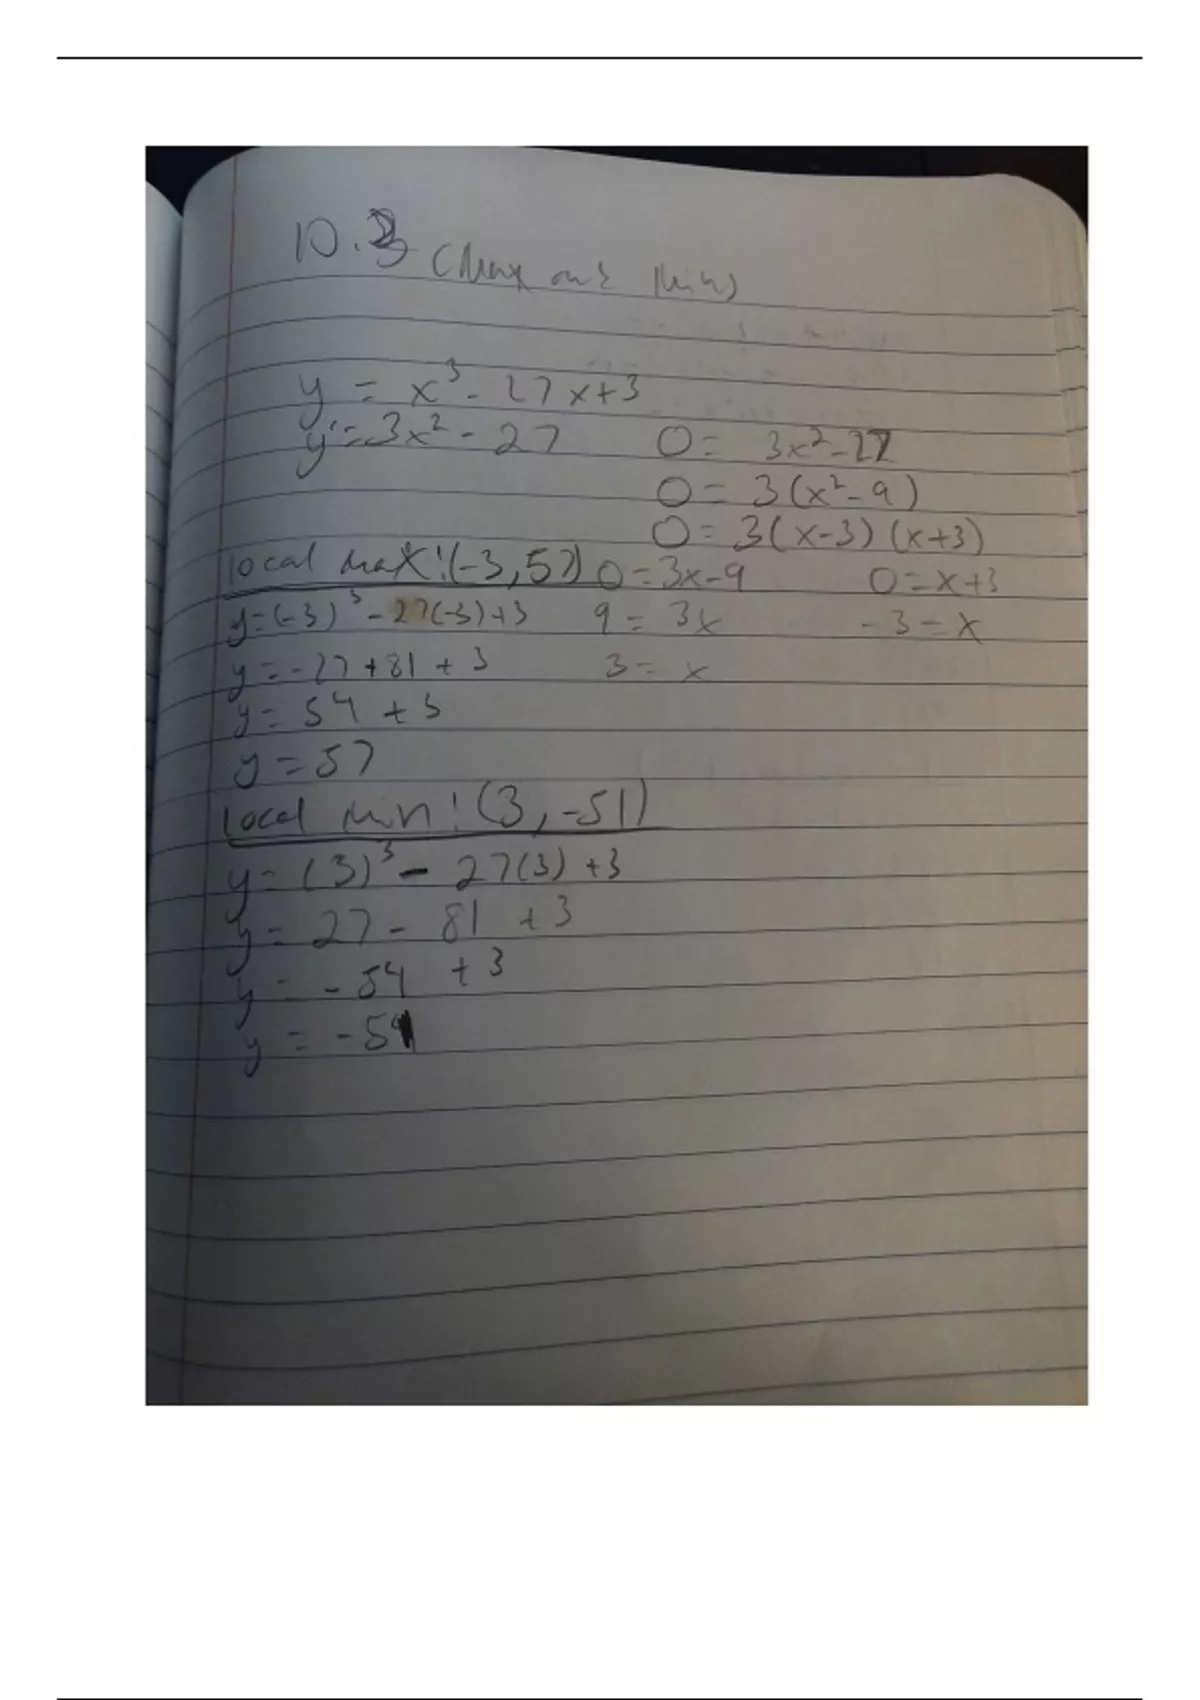 10.3 (Max and Min)
y = x³ - 27x+3
y' = 3x² - 27 0 = 3x² - 27
0 = 3(x² - 9)
0 = 3(x-3)(x+3)
local max: (-3, 57) 0 = 3x-9 0 = x+3
y = (-3)³ - 27(-3)+3 9 = 3x -3 = x
y = -27 + 81 + 3 3 = x
y = 54 + 3
y = 57
local min: (3, -51)
y = (3)³ - 27(3) +3
y = 27 - 81 + 3
y = -54 + 3
y = -51